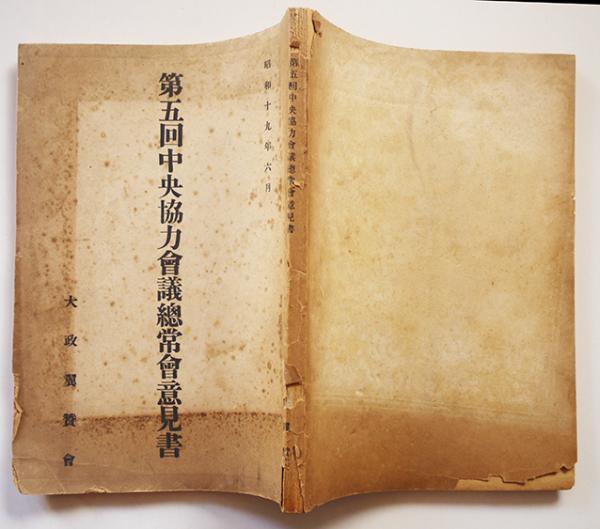 昭和十九年六月
第五回中央協力會議總常會意見書
大政翼贊會
第五回中央協力會議總常會意見書